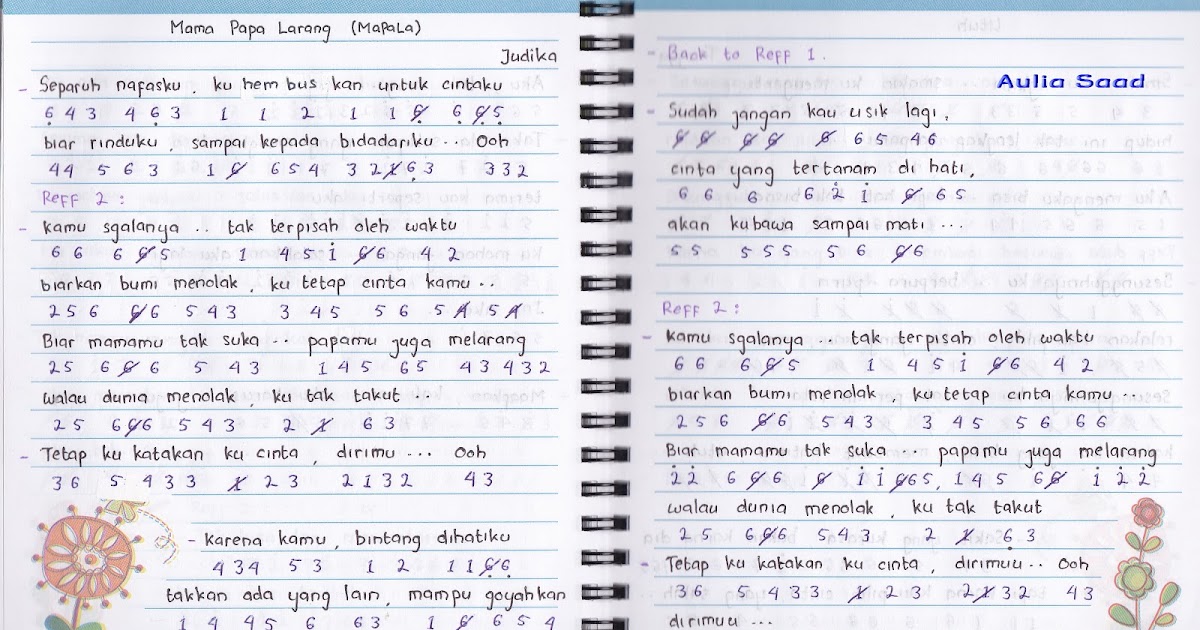 Mama Papa Larang (MaPaLa)
Judika
- Separuh nafasku, ku hembus kan untuk cintaku
6 4 3 4 6 3 1 1 2 1 1 1 6 6 6 5
biar rinduku, sampai kepada bidadariku.. Ooh
4 4 5 6 3 1 6 6 5 4 3 2 1 6 3 3 3 2
Reff 2 :
- kamu sgalanya .. tak terpisah oleh waktu
6 6 6 6 5 1 4 5 1 6 6 4 2
biarkan bumi menolak, ku tetap cinta kamu..
2 5 6 6 6 5 4 3 3 4 5 5 6 5 4 5 4
Biar mamamu tak suka .. papamu juga melarang
2 5 6 6 6 5 4 3 1 4 5 6 5 4 3 4 3 2
walau dunia menolak, ku tak takut ...
2 5 6 6 6 5 4 3 2 1 6 3
- Tetap ku katakan ku cinta, dirimu ... Ooh
3 6 5 4 3 3 1 2 3 2 1 3 2 4 3
- karena kamu, bintang dihatiku
4 3 4 5 3 1 2 1 1 6 6
takkan ada yang lain, mampu goyahkan
1 4 4 5 6 6 3 1 6 6 5 4
- Back to Reff 1.
Aulia Saad
- Sudah jangan kau usik lagi,
6 6 6 6 6 6 5 4 6
cinta yang tertanam di hati,
6 6 6 6 2 1 6 6 5
akan kubawa sampai mati ...
5 5 5 5 5 5 6 6 6
Reff 2 :
- kamu sgalanya .. tak terpisah oleh waktu
6 6 6 6 5 1 4 5 1 6 6 4 2
biarkan bumi menolak, ku tetap cinta kamu ..
2 5 6 6 6 5 4 3 3 4 5 5 6 6 6
Biar mamamu tak suka ... papamu juga melarang
2 2 6 6 6 6 1 1 6 6 5, 1 4 5 6 6 1 2 2
walau dunia menolak, ku tak takut
2 5 6 6 6 5 4 3 2 1 6 3
- Tetap ku katakan ku cinta, dirimuu.. Ooh
3 6 5 4 3 3 1 2 3 2 1 3 2 4 3
dirimuu ...